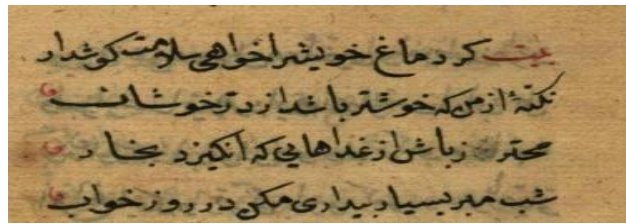 بیت کر دماغ خویش را خواهی سلامت کوش دار
نکتهٔ از من که خوشتر باشد از در خوشاب
محترز باش از غداهایی که انکیزد بخار
شب مبر بسیار بیداری مکن در روز خواب